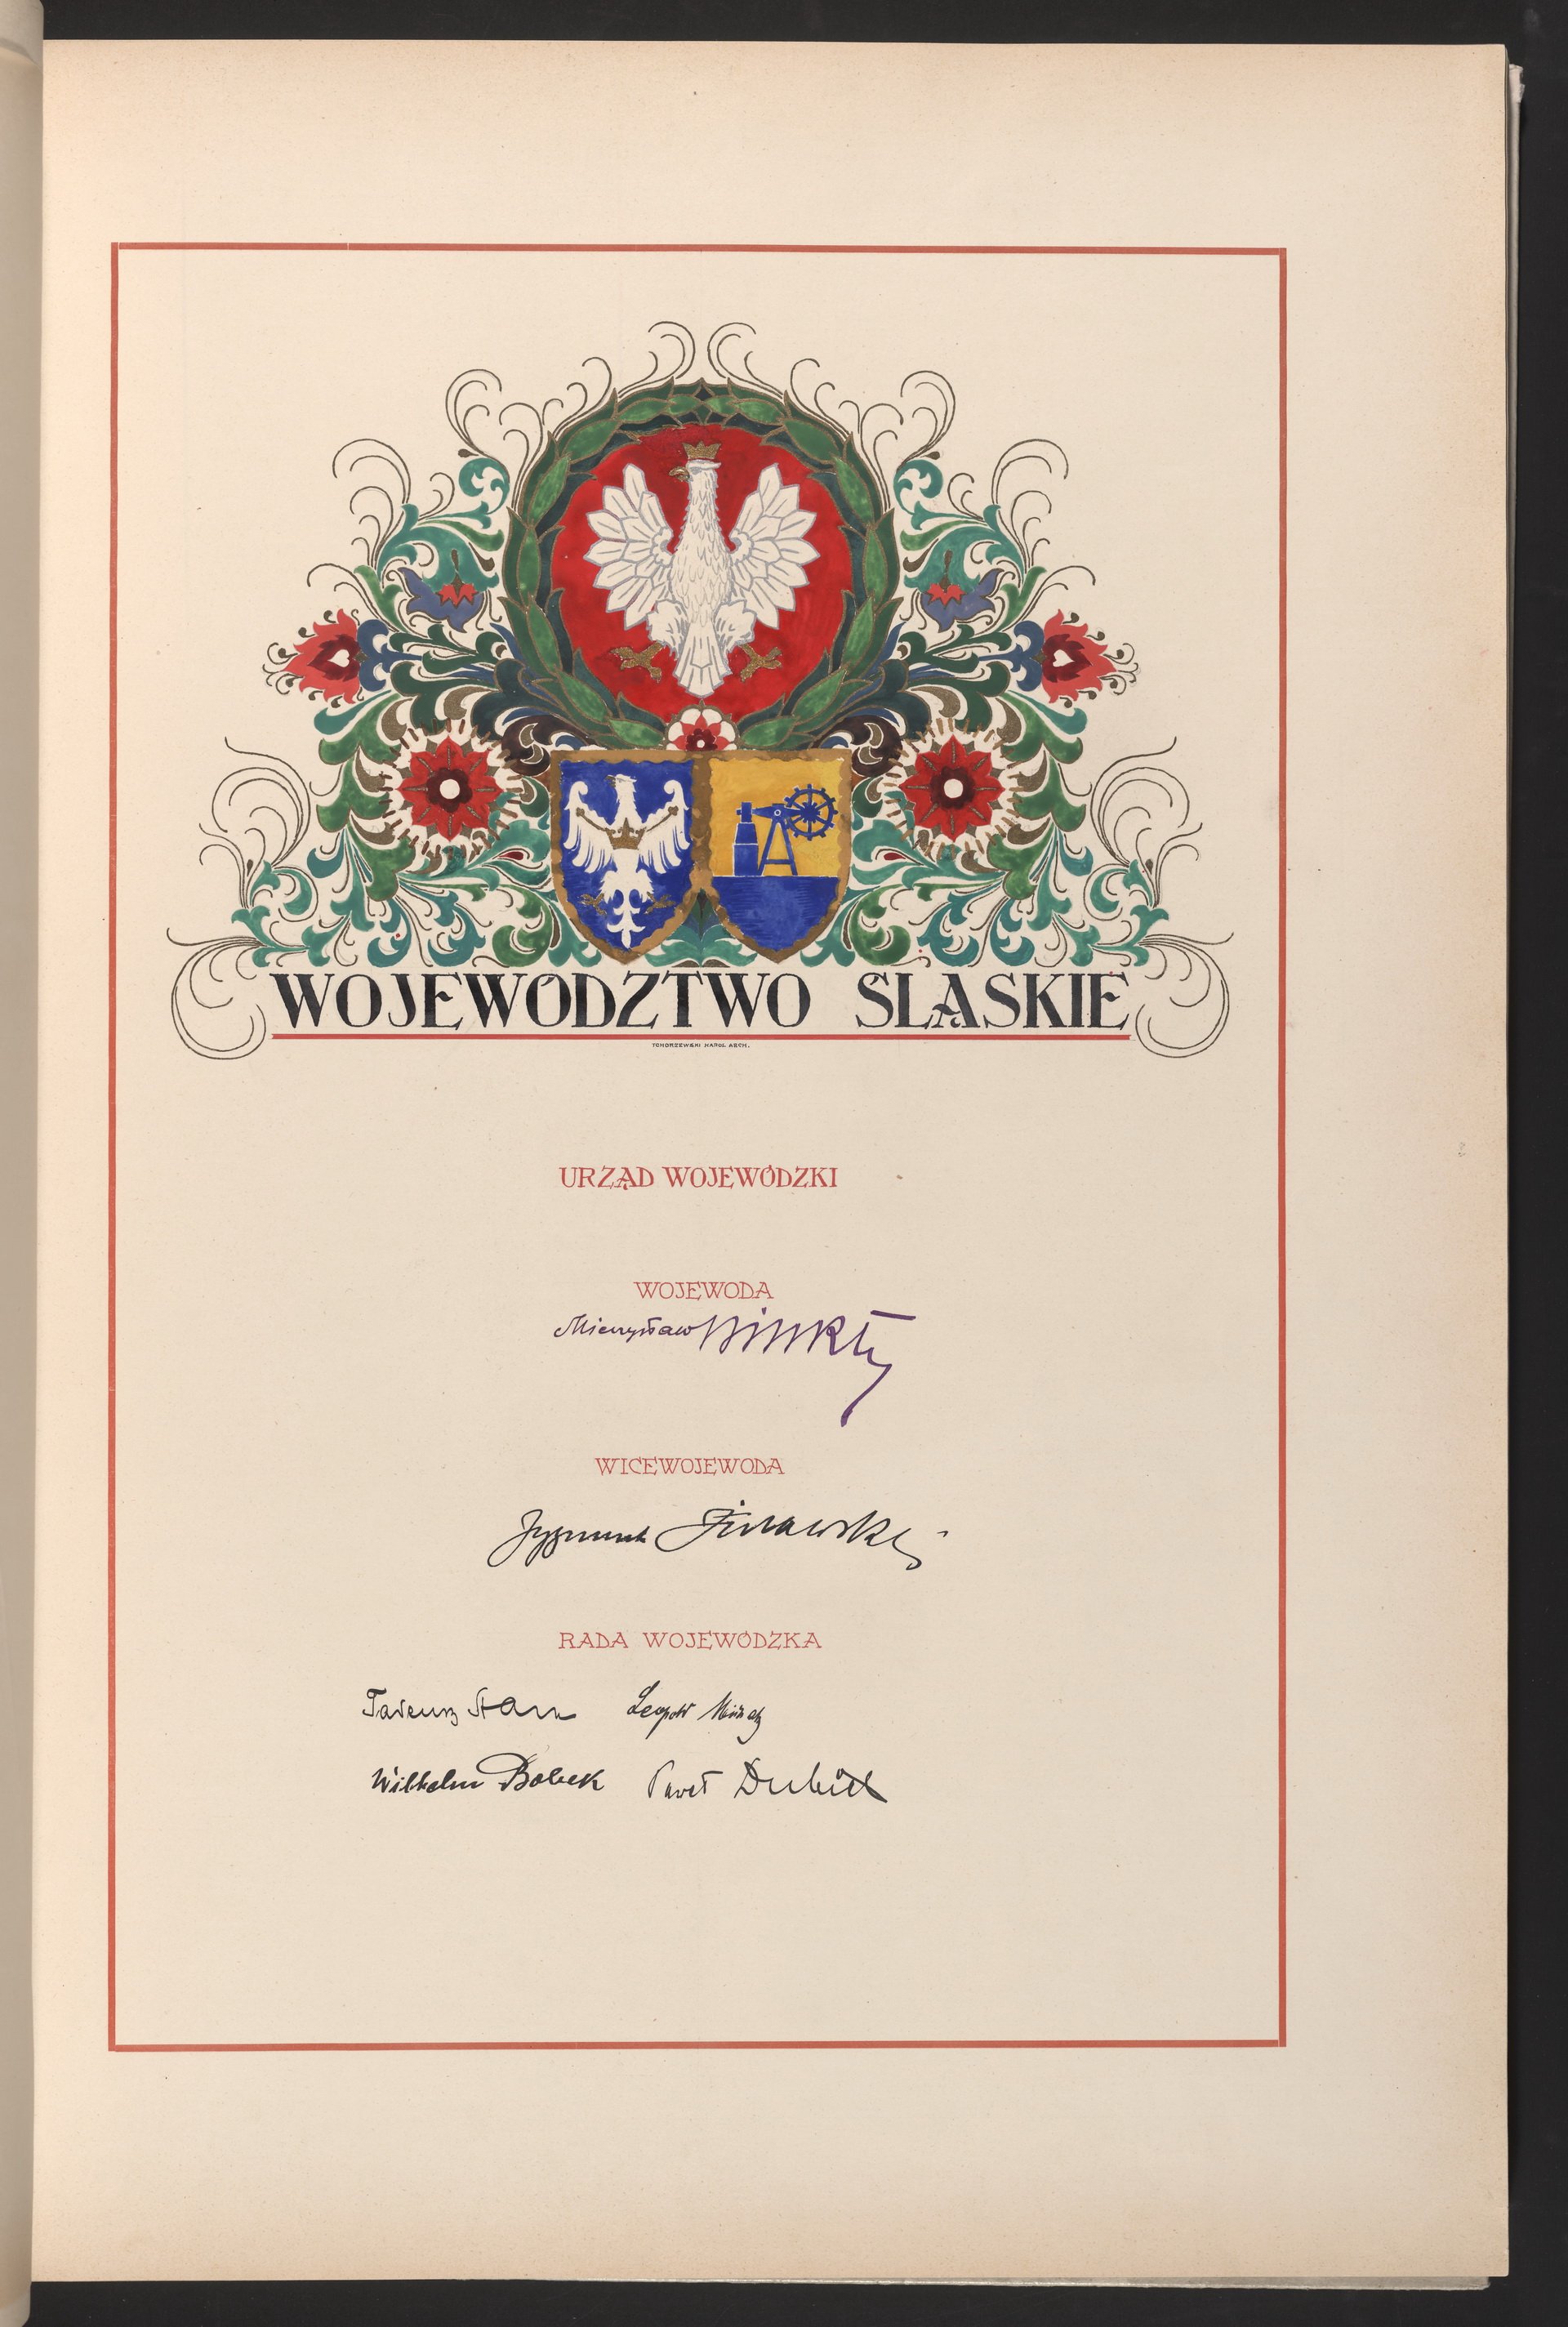 WOJEWÓDZTWO ŚLĄSKIE
TCHORZEWSKI KAROL ARCH.
URZĄD WOJEWÓDZKI
WOJEWODA
Mieczysław Bilski
WICEWOJEWODA
Zygmunt Żurawski
RADA WOJEWÓDZKA
Tadeusz Leopold
Wilhelm Bobek Paweł Dubiel